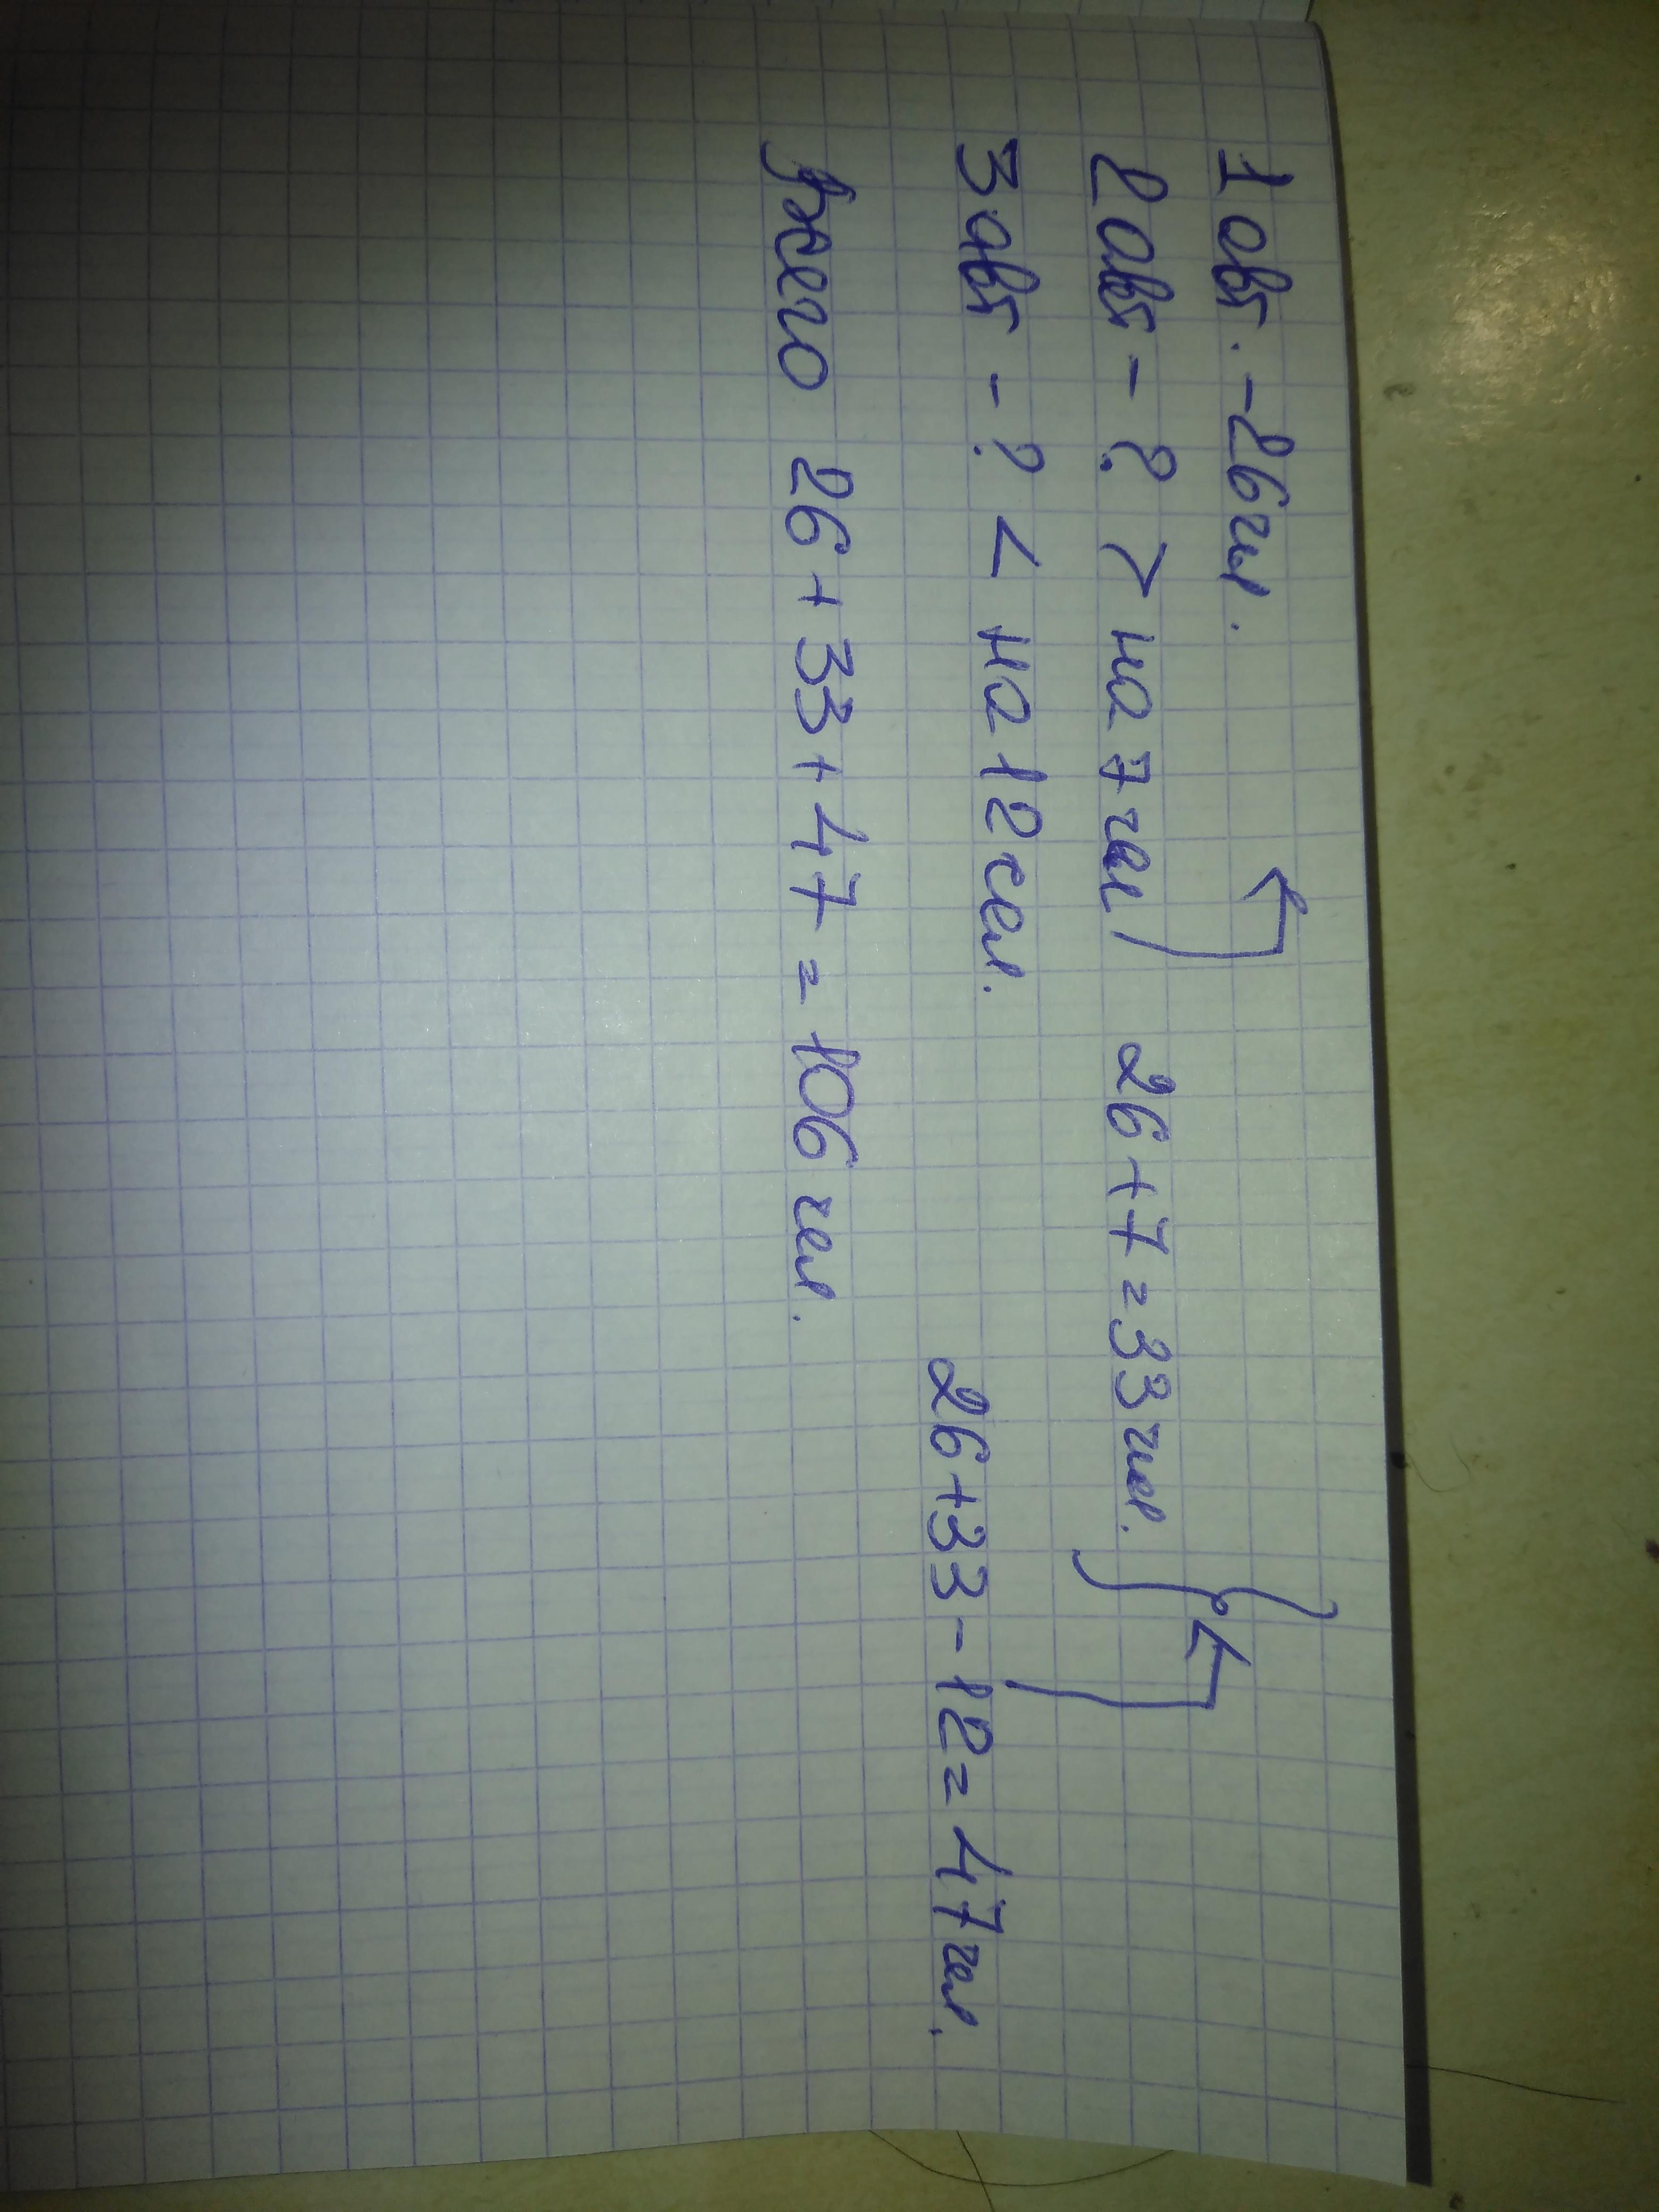 1 авт. - 26 чел.
2 авт - ? > на 7 чел 26 + 7 = 33 чел.
3 авт - ? < на 12 сел.
26 + 33 - 12 = 47 чел.
Всего 26 + 33 + 47 = 106 чел.